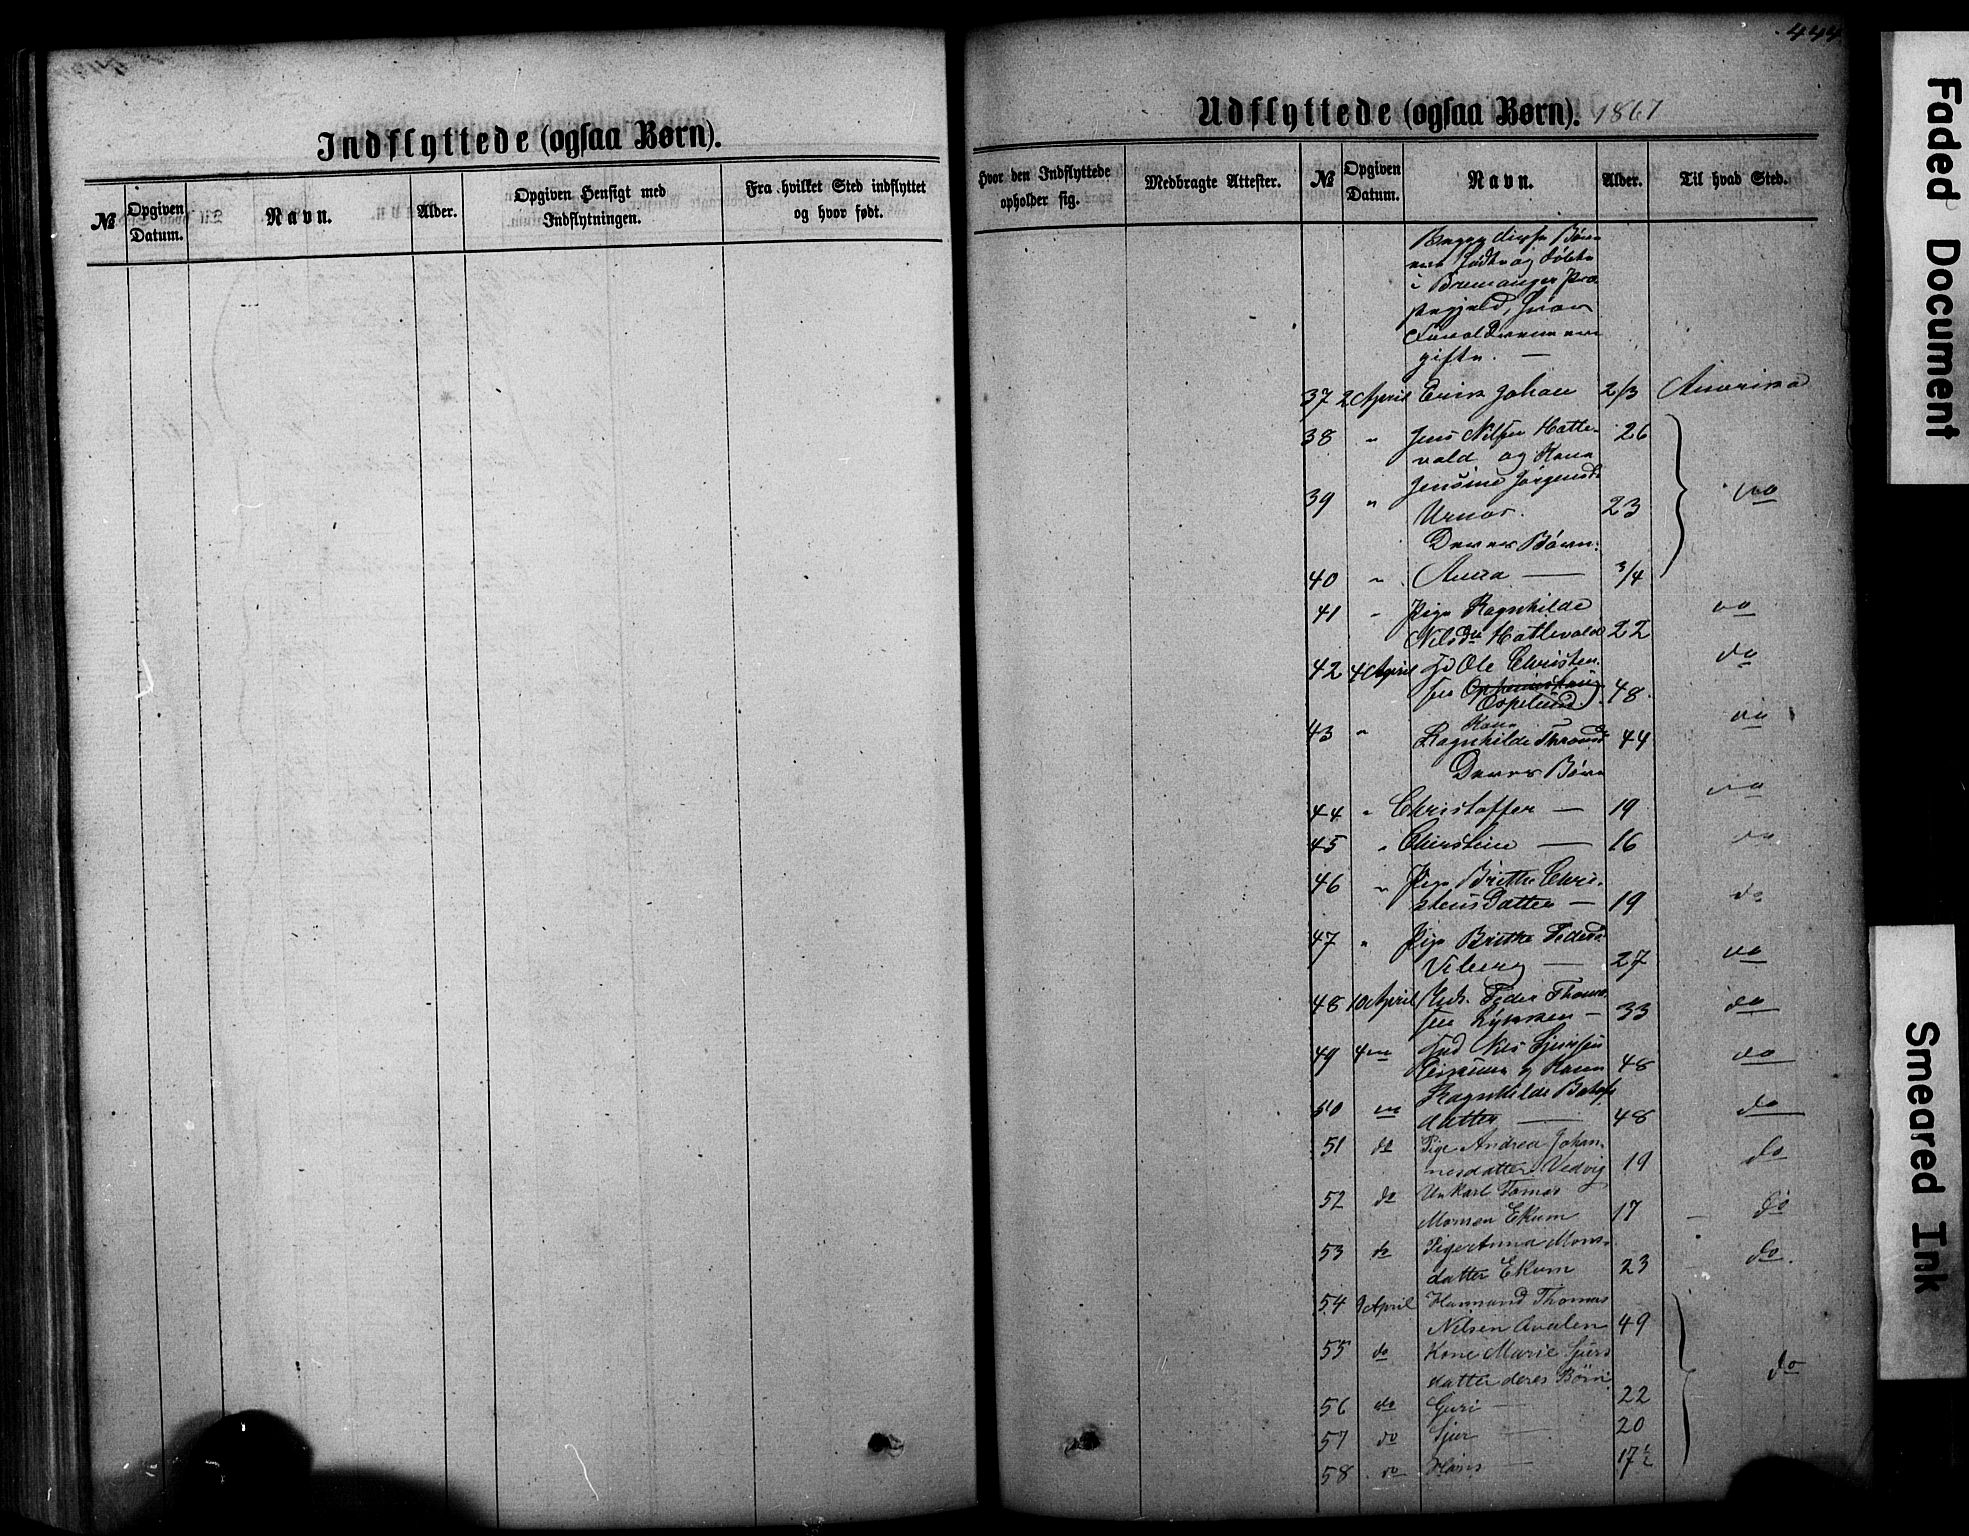 444.
Indflyttede (ogsaa Børn).
№
Opgiven Datum.
Navn.
Alder.
Opgiven Hensigt med Indflytningen.
Fra hvilket Sted indflyttet og hvor født.
Udflyttede (ogsaa Børn). 1867
Hvor den Indflyttede opholder sig.
Medbragte Attester.
№
Opgiven Datum.
Navn.
Alder.
Til hvad Sted.
Begge disse Børn
ere fødte og døbte
i Bremanger Præ-
stegjeld, hvor
Forældrene ere
gifte. —
37 2 April Erik Johan 2/3 Amerika
38 " Jens Nilsen Hatle-
vold og Kone 26
39 " Jensine Jørgensd. do
Urnæs. 23
Deres Børn:
40 " Anna — 3/4
41 " Pige Ragnhilde do
Nilsdtr Hatlevold 22
42 4 April Hd Ole Christen- do
sen Espelund 48.
Kone
43 " Ragnhilde Thronds 44 do
Deres Børn
44 " Christoffer — 19 do
45 " Christine — 16 do
46 " Pige Brithe Chri-
stensdatter — 19 do
47 " Pige Brithe Peders
Veberg — 27 do
48 10 April Unk. Peder Thom-
sen Lyksen — 33 do
49 4 Hd Nils
og Kone 48 do
50 Ragnhilde
datter — 48 do
51 do Pige Andrea Johan-
nesdatter Vedvig 19 do
52 do Unkarl Tomas
Monsen Ekum 17 — do
53 do Pige Anna Mons-
datter Ekum 23 — do.
54 9 April Huusmand Thomas
Nilsen Avalen 49
55 do Kone Marie Sjurs
datter deres Børn do
56 do Guri — 22
57 do Sjur — 20
58 do Hans — 17½
Faded Document
Smeared Ink